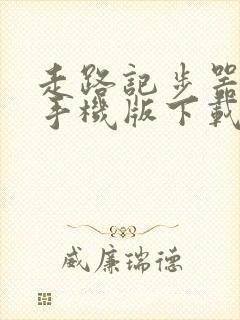 走路記步器
手機版下載
威廉瑞德